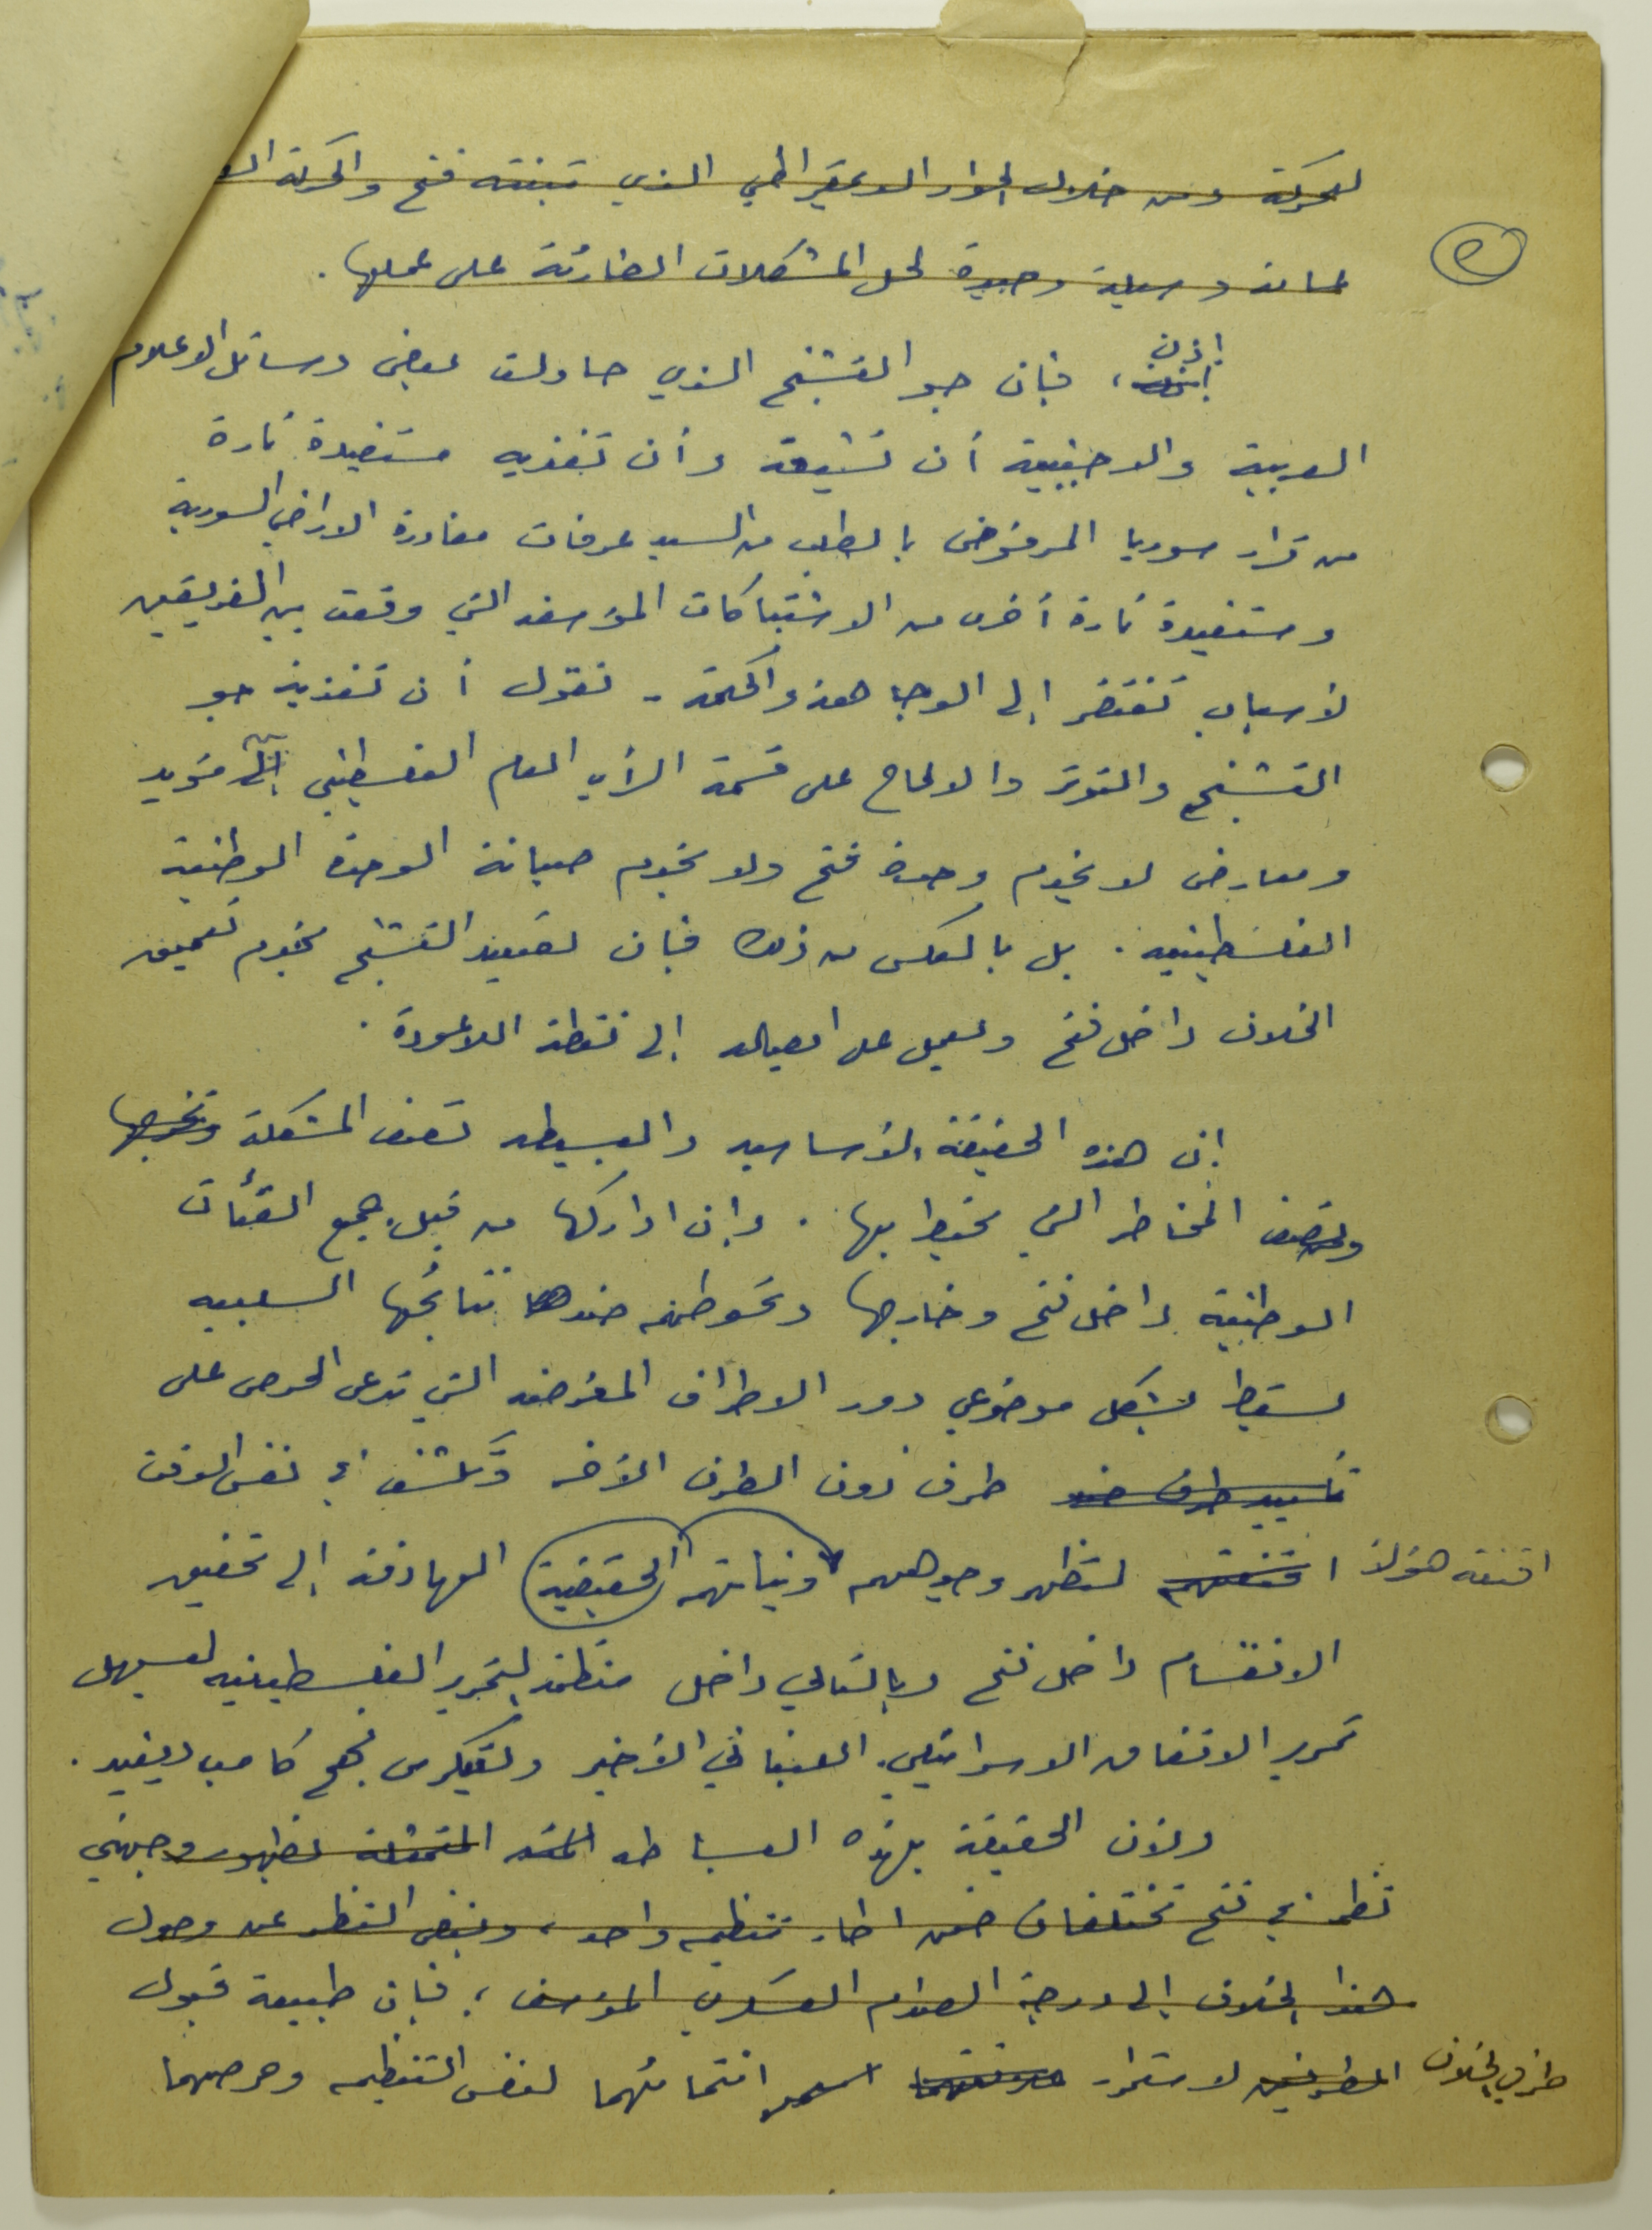 للحركة ومن خلال الحوار الديمقراطي الذي تبنته فتح والحركة
كمانة وسيلة وحيدة لحل المشكلات الطارئة على عملها .
٢
اذن
، فإن جو التشنج الذي حاولت بعض وسائل الاعلام
العربية والاجنبية أن تشيعه وأن تغذيه مستفيدة تارة
من قرار سوريا المرفوض بالطلب من السيد عرفات مغادرة الاراضي السورية
ومستفيدة تارة أخرى من الاشتباكات المؤسفه التي وقعت بين الفريقين
لأسباب تفتقر إلى الوجاهه والحكمة - نقول أن تغذية جو
التشنج والتوتر والالحاح على قسمة الرأي العام الفلسطيني إلى مؤيد
ومعارض لا يخدم وحدة فتح ولا يخدم صيانة الوحدة الوطنية
الفلسطينية . بل بالعكس من ذلك فإن تصعيد التشنج يخدم تعميق
الخلاف داخل فتح ويعمل على ايصاله إلى نقطة اللاعودة .
إن هذه الحقيقة الأساسيه والبسيطه تصف المشكلة وتخرجها
وتصف المخاطر التي تحيط بها . وإن ادراكها من قبل جميع الفئات
الوطنية داخل فتح وخارجها وتحوطهم ضد نتائجها السلبيه
يسقط بشكل موضوعي دور الاطراف المغرضه التي تدعي الحرص على
تأييد طرف ضد طرف دون الطرف الأخر وتكشف في نفس الوقت
اقنعة هؤلاء اقنعتهم لتظهر وجوههم ونياتهم الحقيقية الهادفة إلى تحقيق
الانقسام داخل فتح وبالتالي داخل منظمة التحرير الفلسطينيه لتسهيل
تمرير الاتفاق الاسرائيلي . اللبناني الأخير ولتكريس نهج كامب ديفيد .
ولأن الحقيقة بهذه البساطه المتمثلة بظهور وجهتي
نظر في فتح تختلفان ضمن اطار تنظيم واحد ، وبغض النظر عن وصول
هذا الخلاف إلى درجة الصدام العسكري المؤسف ؛ فإن طبيعة قبول
طرفي الخلاف الطرفين لاستمرار انتمائهما لنفس التنظيم وحرصهما